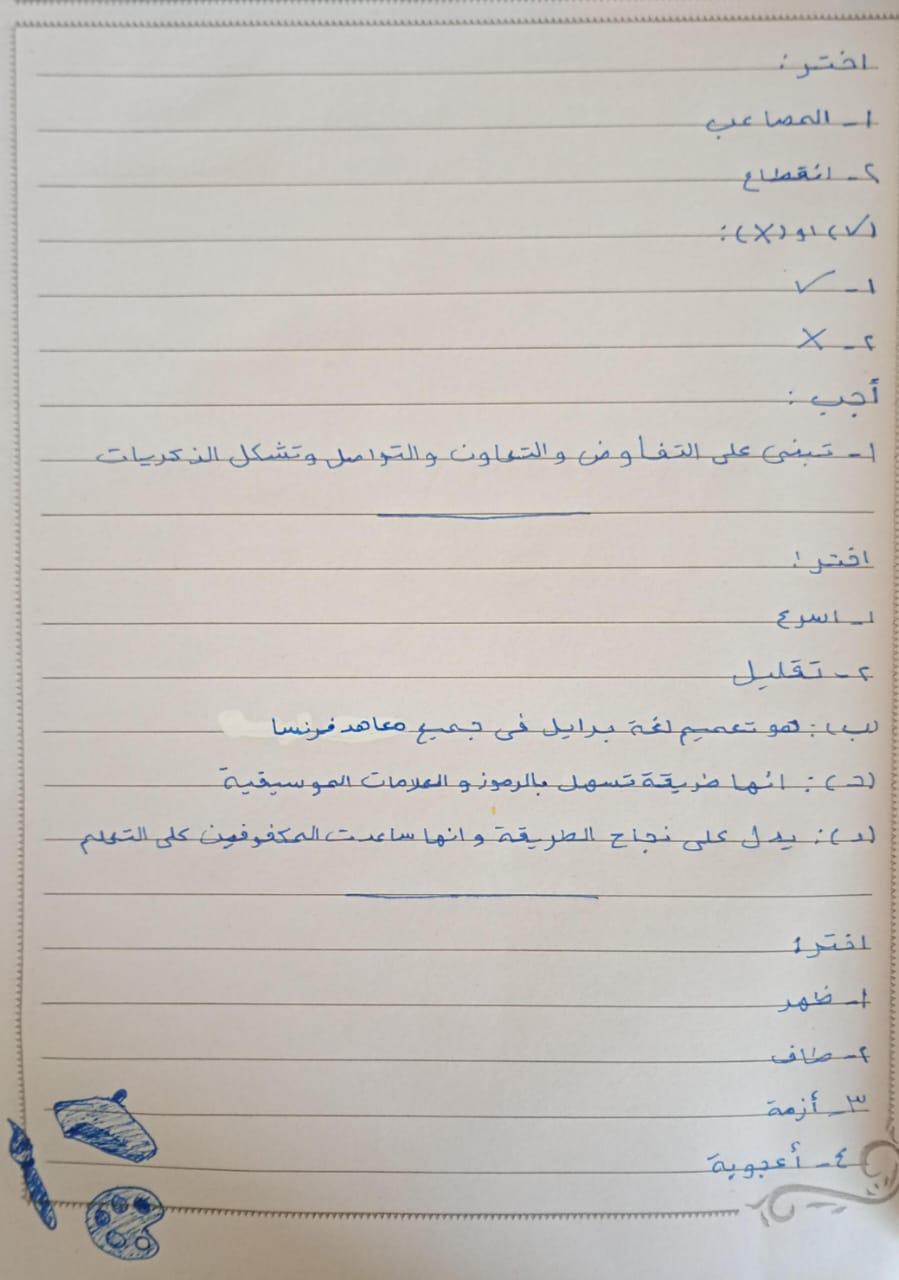 اختر:
١- المصاعب
٢- انقطاع
(✓) او (X):
١- ✓
٢- X
أجب:
١- تبنى على التفاوض والتعاون والتواصل وتشكل الذكريات
اختر:
١- اسرع
٢- تقليل
(ب): هو تعميم لغة برايل فى جميع معاهد فرنسا
(ج): انها طريقة تسهل بالرموز و العلامات الموسيقية
(د): يدل على نجاح الطريقة وانها ساعدت المكفوفين على التعلم
اختر:
١- ظهر
٢- طاف
٣- أزمة
٤- أعجوبة